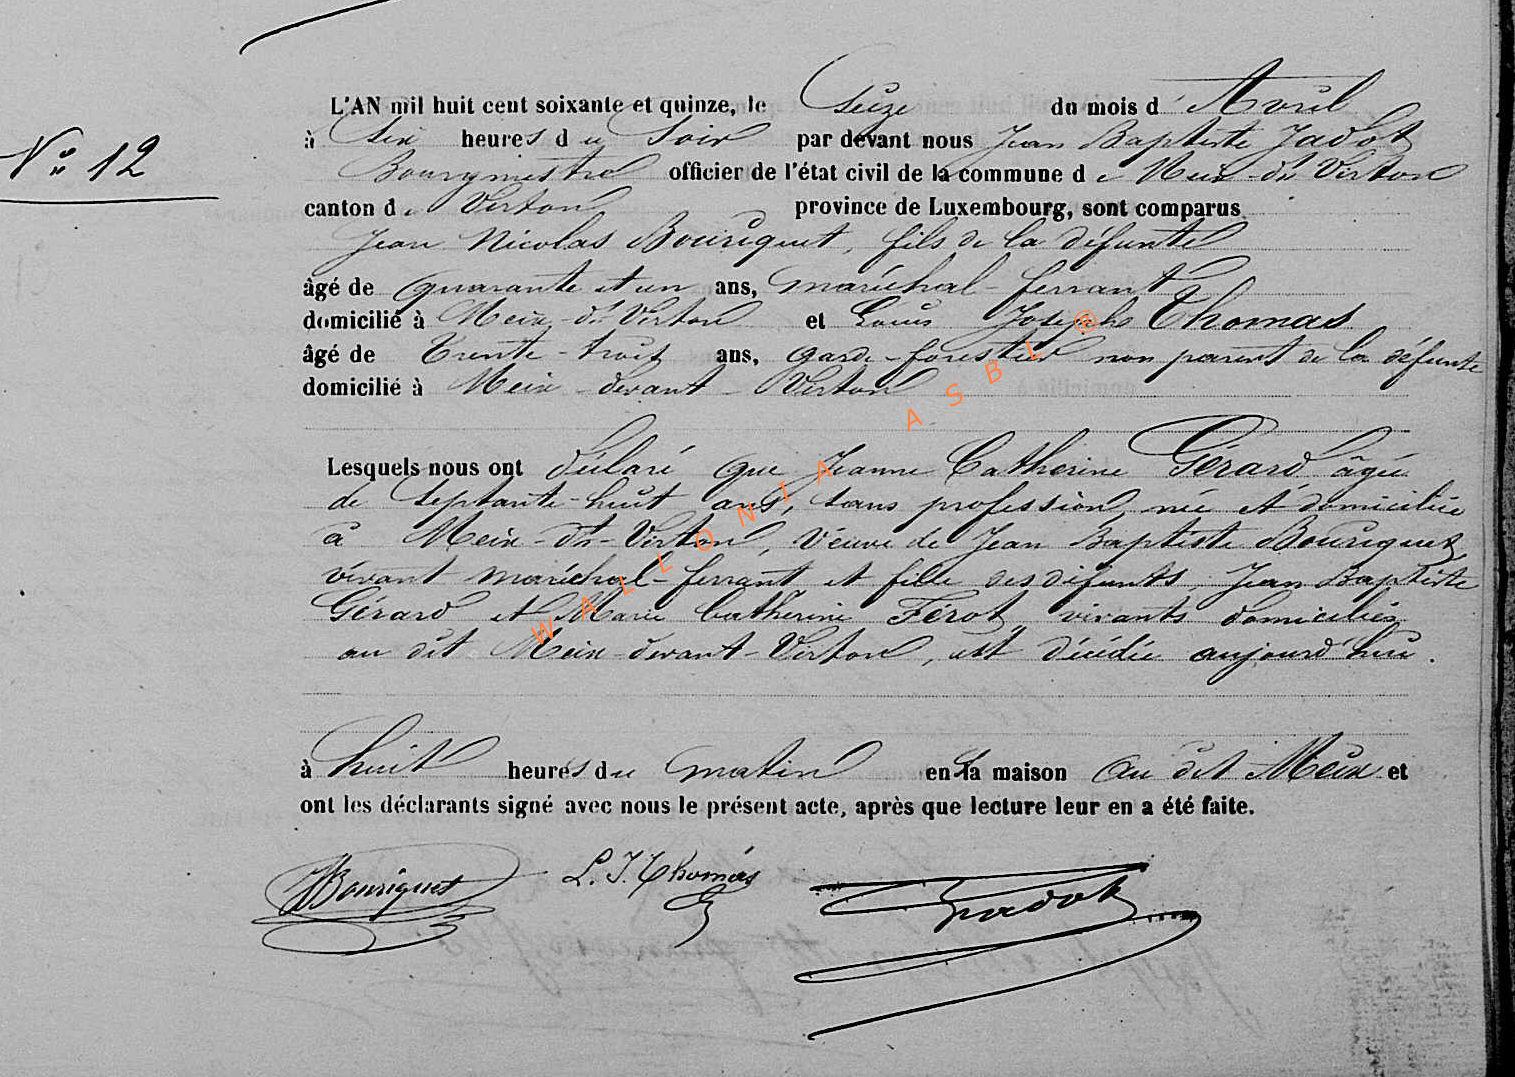 L'AN mil huit cent soixante et quinze, le Seize du mois d'Avril
N° 12
à Six heures du Soir par devant nous Jean Baptiste Jadot
Bourgmestre officier de l'état civil de la commune de Meix-dt Virton
canton de Virton province de Luxembourg, sont comparus
Jean Nicolas Bouriquet, fils de la défunte
âgé de quarante et un ans, maréchal-ferrant
domicilié à Meix-dt Virton et Louis Joseph Thomas
âgé de trente-trois ans, garde-forestier non parent de la défunte
domicilié à Meix-devant-Virton
Lesquels nous ont déclaré que Jeanne Catherine Gérard âgée
de septante-huit ans, sans profession, née et domiciliée
à Meix-dt-Virton, veuve de Jean Baptiste Bouriquet,
vivant maréchal-ferrant et fille des défunts Jean Baptiste
Gérard et Marie Catherine Férot, vivants domiciliés
au dit Meix-devant-Virton, est décédée aujourd'hui.
à huit heures du matin en sa maison au dit Meix et
ont les déclarants signé avec nous le présent acte, après que lecture leur en a été faite.
JNBouriquet L. J. Thomas Jadot
WALLONIA ASBL ®